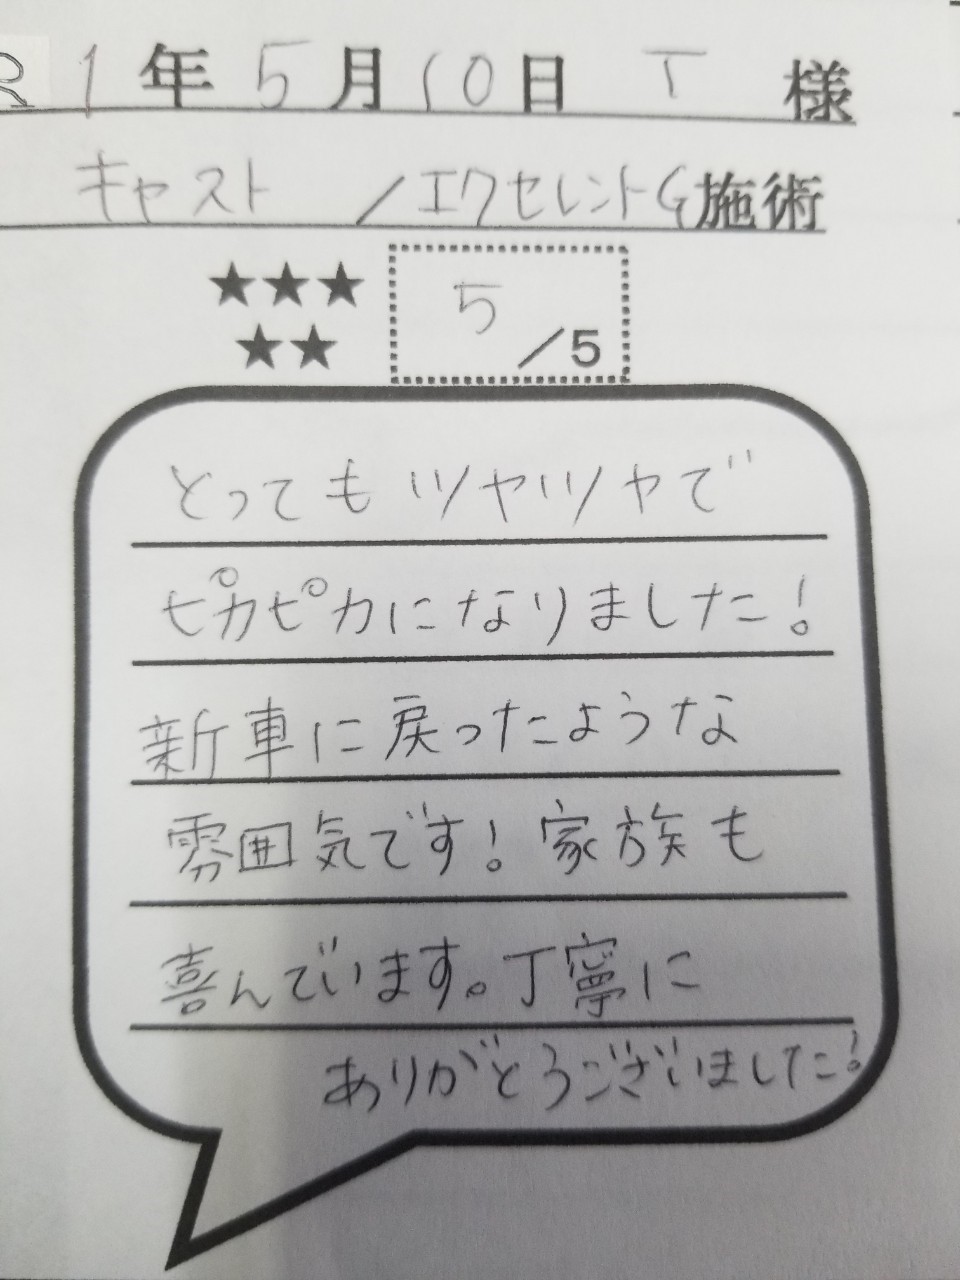 R1年5月10日 T 様
キャスト /エクセレントG施術
★★★
★★
5/5
とってもツヤツヤで
ピカピカになりました!
新車に戻ったような
雰囲気です!家族も
喜んでいます。丁寧に
ありがとうございました!